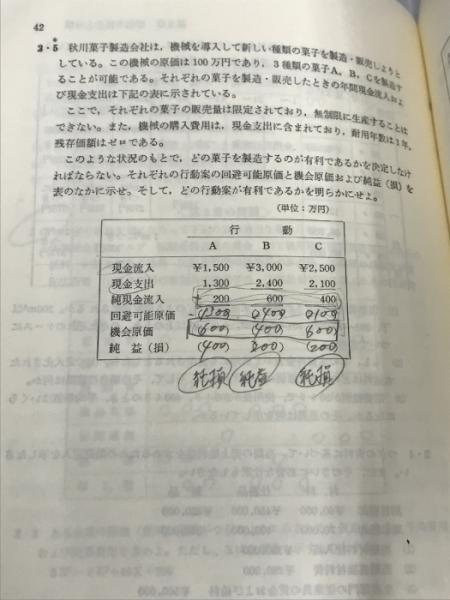 42
2・5 秋川菓子製造会社は，機械を導入して新しい種類の菓子を製造・販売しようと
している。この機械の原価は100万円であり，3種類の菓子A，B，Cを製造す
ることが可能である。それぞれの菓子を製造・販売したときの年間現金流入およ
び現金支出は下記の表に示されている。
ここで，それぞれの菓子の販売量は限定されており，無制限に生産することは
できない。また，機械の購入費用は，現金支出に含まれており，耐用年数は1年，
残存価額はゼロである。
このような状況のもとで，どの菓子を製造するのが有利であるかを決定しなけ
ればならない。それぞれの行動案の回避可能原価と機会原価および純益（損）を
表のなかに示せ。そして，どの行動案が有利であるかを明らかにせよ。
（単位：万円）
行 動
A B C
現金流入 ¥1,500 ¥3,000 ¥2,500
現金支出 1,300 2,400 2,100
純現金流入 200 600 400
回避可能原価
機会原価 (600) (400) (600)
純 益（損） (400) 200) (200)
純損 純益 純損